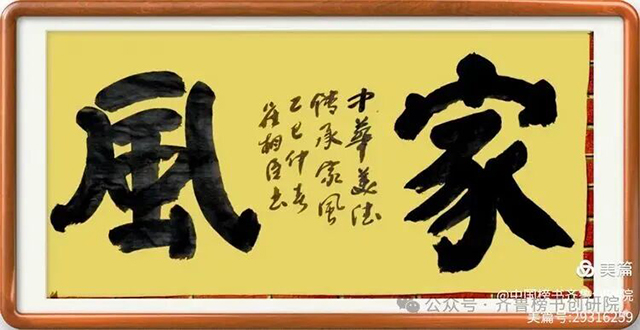 家風
中華美德
傳承家風
乙巳仲春
崔相臣书
美篇
@中国榜书齐鲁创研院
公众号·齐鲁榜书创研院
美篇号:29316259